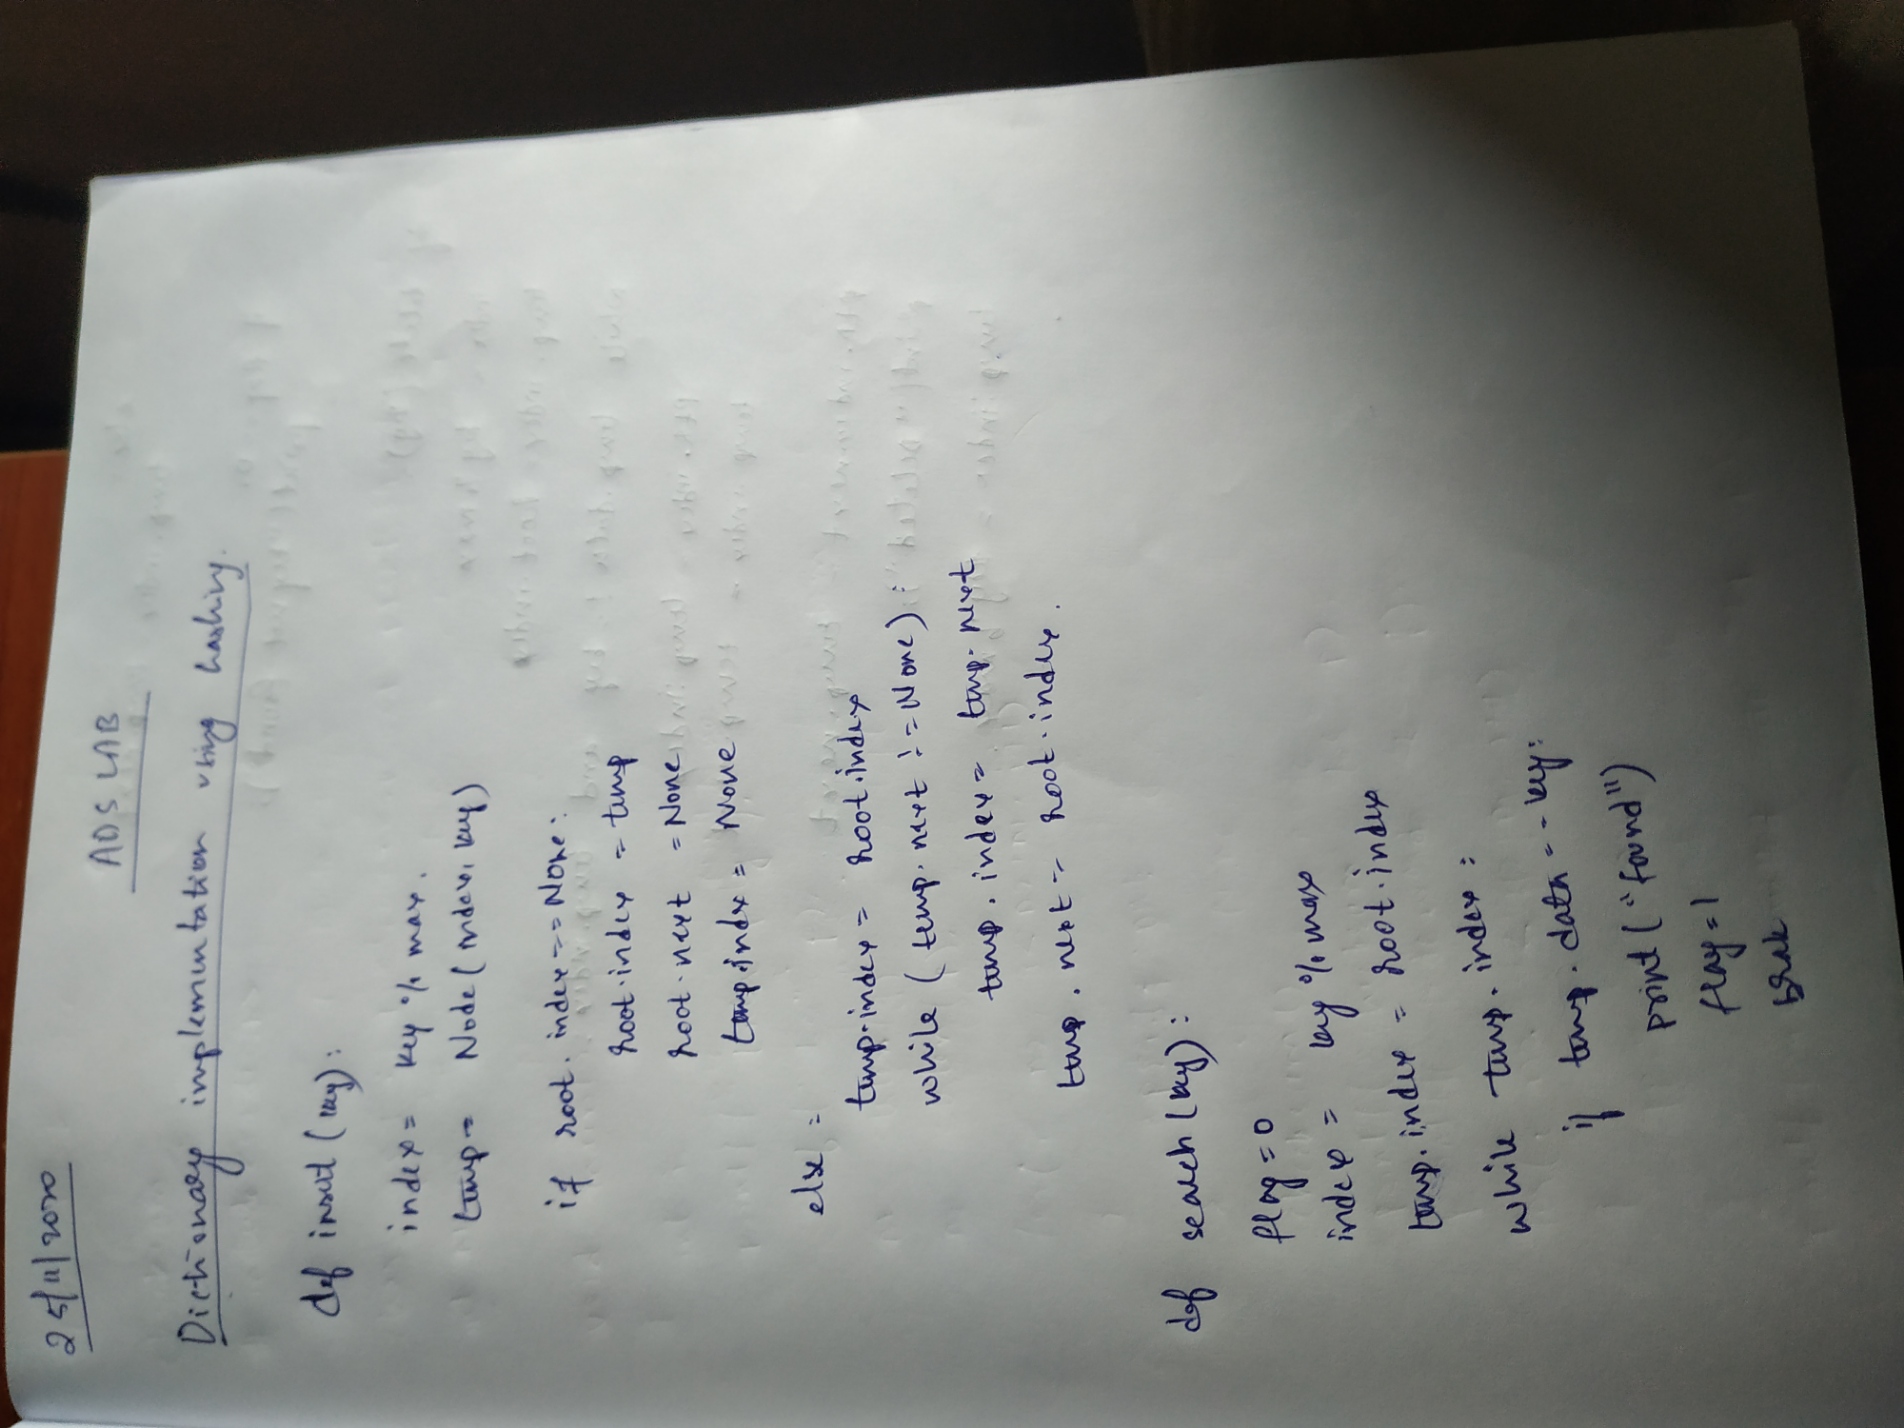 25/11/2020
ADS LAB
Dictionary implementation using hashing.
def insert (key):
index = key % max.
temp = Node (index, key)
if root.index == None:
root.index = temp
root.next = None
temp.index = None
else:
temp.index = root.index
while (temp.next != None):
temp.index = temp.next
temp.next = root.index.
def search (key):
flag = 0
index = key % max
temp.index = root.index
while temp.index:
if temp.data == key:
print ("found")
flag = 1
break